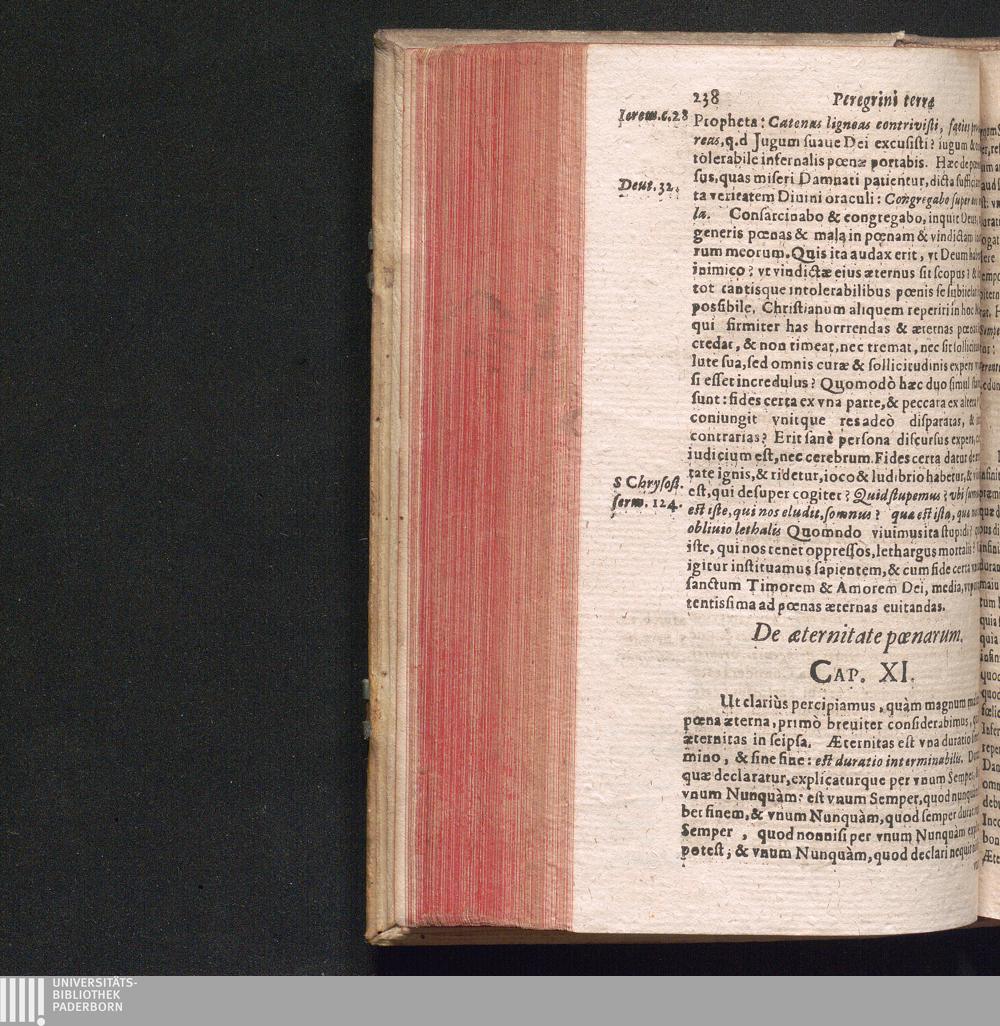 238 Peregrini terræ
Ierem. c. 28
Propheta: Catenas ligneas contrivisti, facies
reas, q.d Jugum suaue Dei excusisti? iugum &
tolerabile infernalis pœnæ portabis. Hæc de
Deut. 32.
sus, quas miseri Damnati patientur, dicta
ta veritatem Diuini oraculi: Congregabo super
la. Consarcinabo & congregabo, inquit Deus,
generis pœnas & mala in pœnam & vindictam
rum meorum. Quis ita audax erit, vt Deum
inimico? vt vindictæ eius æternus sit scopus? &
tot tantisque intolerabilibus pœnis se
possibile, Christianum aliquem reperiri in hoc
qui firmiter has horrrendas & æternas
credat, & non timeat, nec tremat, nec sit
lute sua, sed omnis curæ & sollicitudinis expers
si esset incredulus? Quomodò hæc duo simul
sunt: fides certa ex vna parte, & peccata ex altera?
coniungit vnitque res adeò disparatas, &
contrarias? Erit sanè persona discursus expers,
iudicium est, nec cerebrum. Fides certa datur de
tate ignis, & ridetur, ioco & ludibrio habetur, &
S Chrysost.
serm. 124.
est, qui desuper cogitet? Quid stupemus? vbi sumus
est iste, qui nos eludit, somnus? quæ est ista, quæ nos
obliuio lethalis Quomndo viuimus ita stupidi?
iste, qui nos tenet oppressos, lethargus mortalis?
igitur instituamus sapientem, & cum fide certa
sanctum Timorem & Amorem Dei, media,
tentissima ad pœnas æternas euitandas.
De æternitate pœnarum.
CAP. XI.
Ut clariùs percipiamus, quàm magnum
pœna æterna, primò breuiter considerabimus,
æternitas in seipsa. Æternitas est vna duratio
mino, & sine fine: est duratio interminabilis.
quæ declaratur, explicaturque per vnum Semper,
vnum Nunquàm: est vnum Semper, quod nunquàm
bet finem, & vnum Nunquàm, quod semper durat
Semper, quod nonnisi per vnum Nunquàm
potest; & vnum Nunquàm, quod declari nequit
UNIVERSITÄTS-
BIBLIOTHEK
PADERBORN